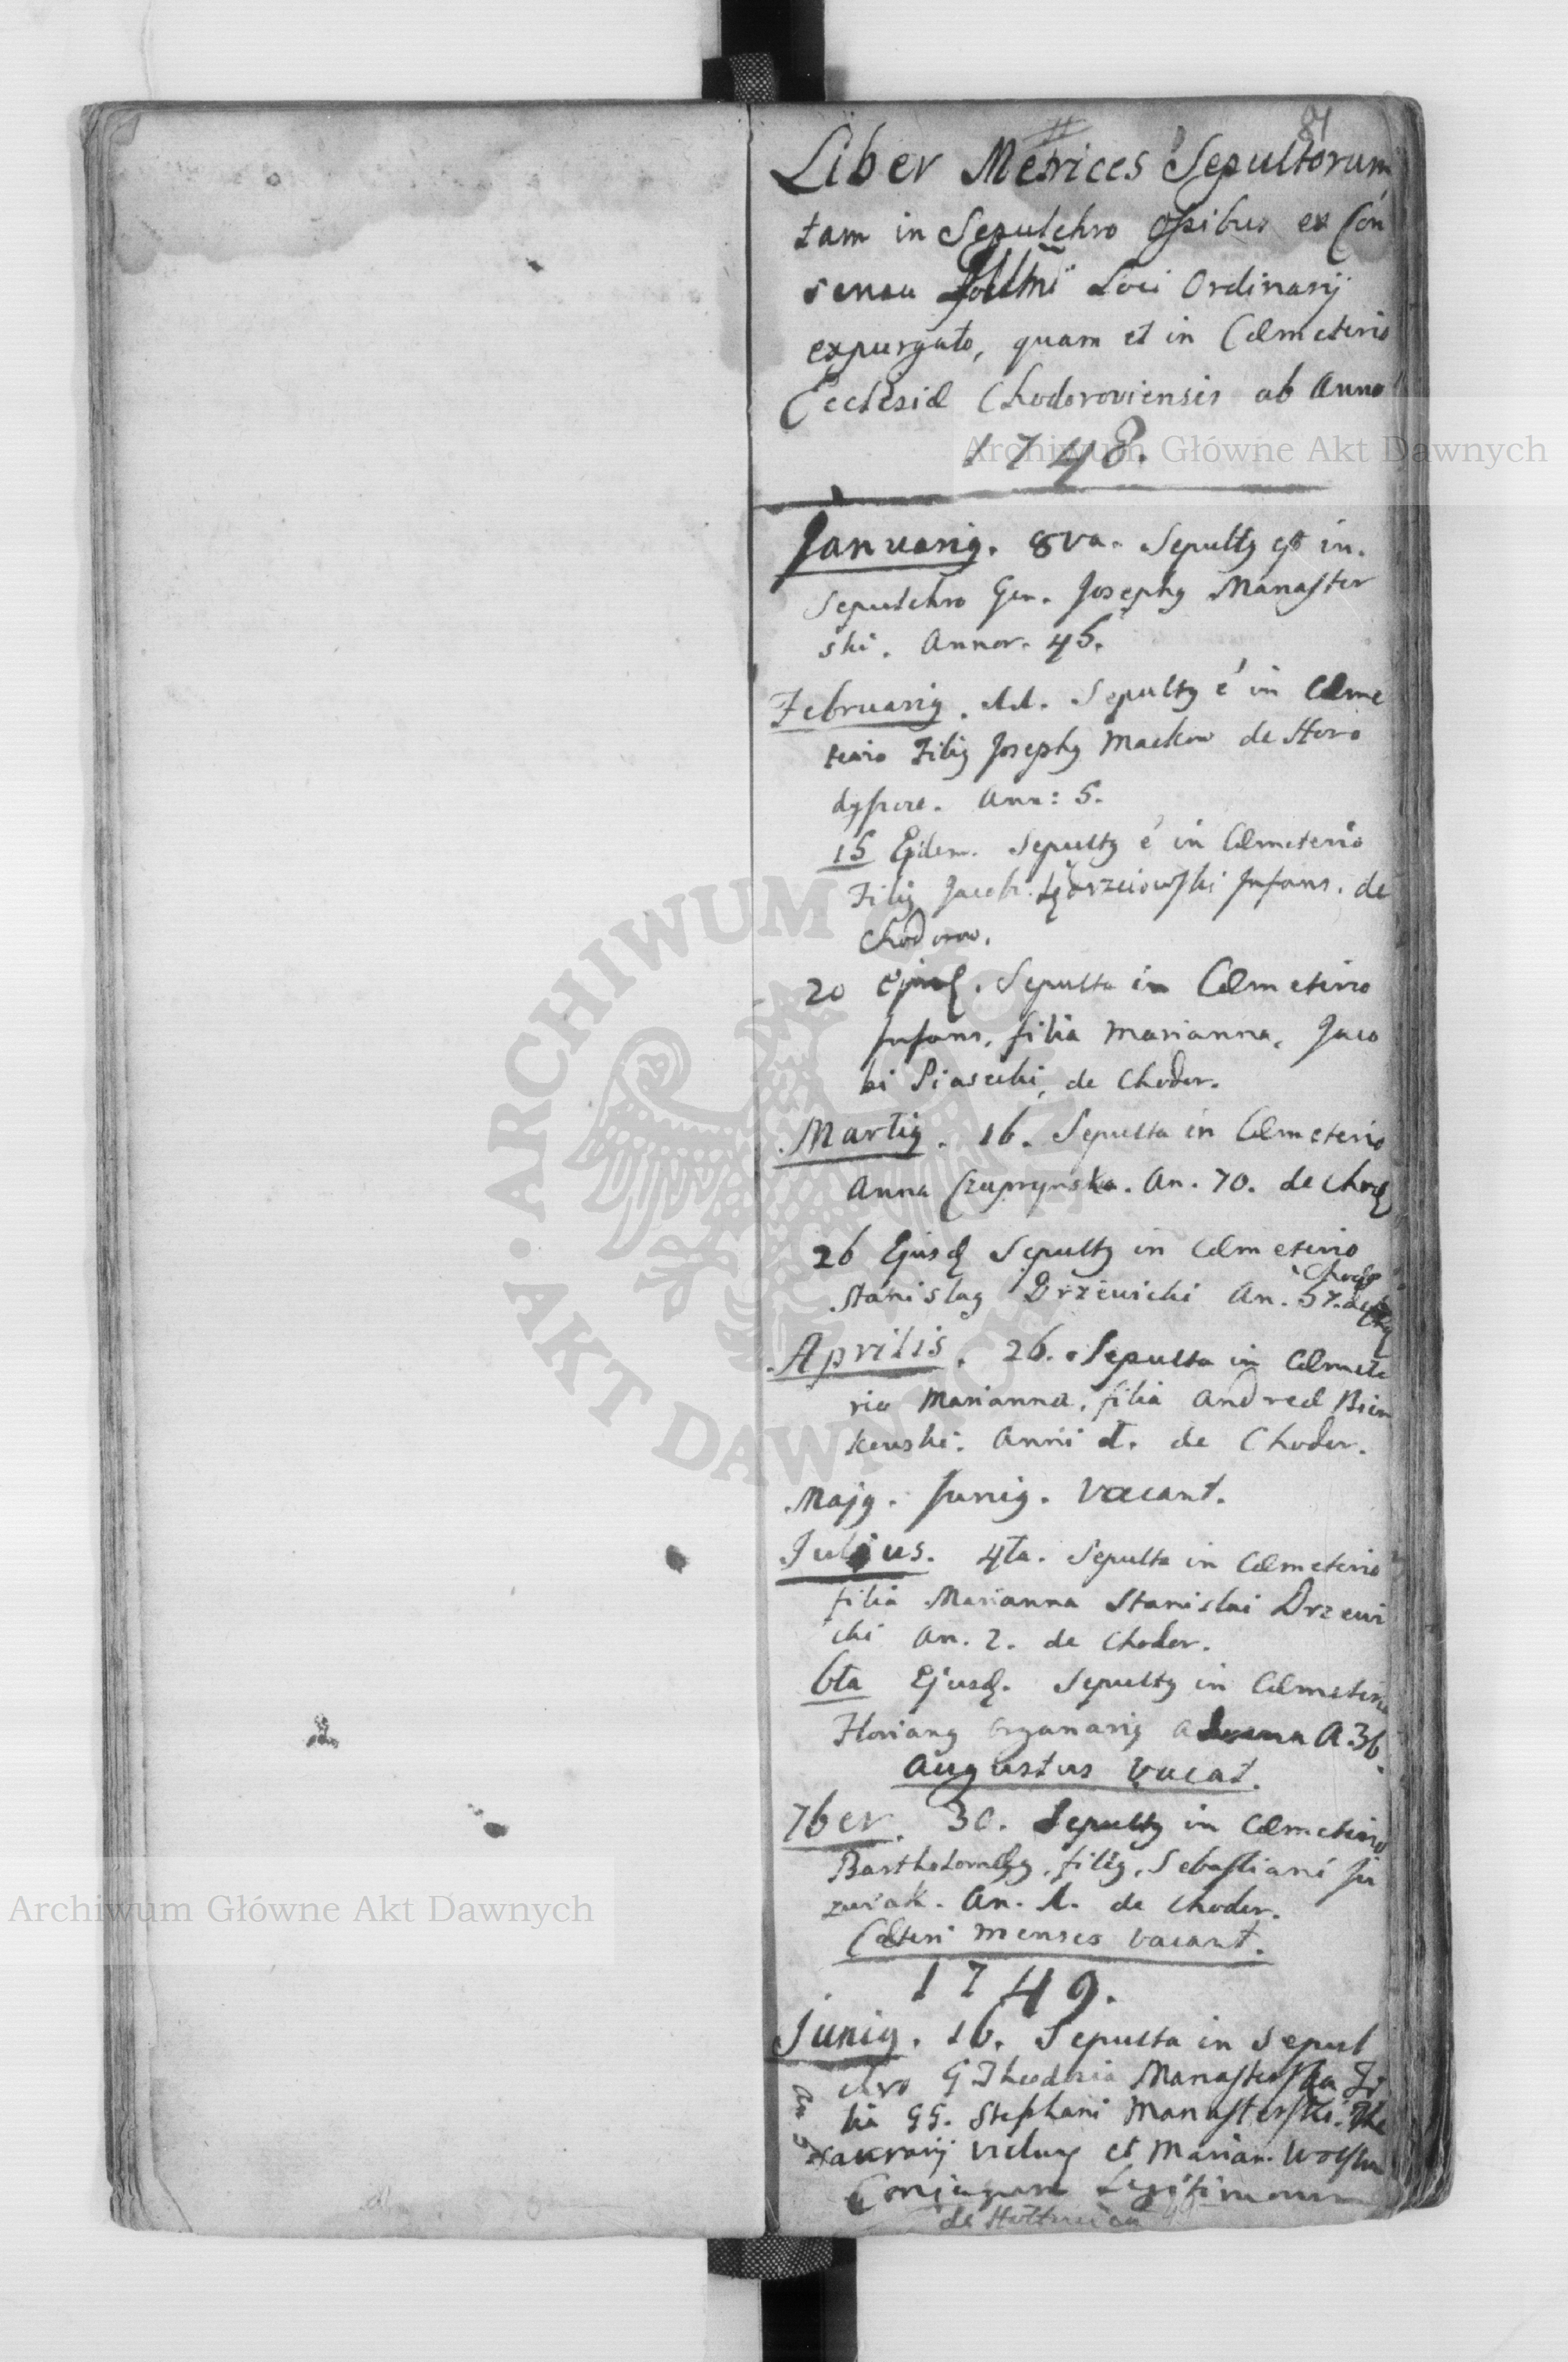 81
Liber Metrices Sepultorum
tam in Sepulchro Ossibus ex Con
sensu Loci Ordinarij
expurgato, quam et in Cæmeterio
Ecclesiæ Chodoroviensis ab Anno
1748.
Januarig. 8va. Sepultg est in.
Sepulchro Gen. Josephg Manaster
ski. Annor. 45.
Februarig. 11. Sepultg é in Cæme
terio Filig Josephg Mackow de Horo
dyszcze. Ann: 5.
15 Ejdem. Sepultg é in Cæmeterio
Filig Jacobi Infans. de
Chodorow.
20 Ejusd. Sepulta in Cæmeterio
Infans, filia Marianna, Jaco
bi Piasecki, de Chodor.
Martig. 16. Sepulta in Cæmeterio
Anna Czuprynska. An. 70. de Chod
26 Ejusd Sepultg in Cæmeterio
Stanislag Drzewicki An. 57. de Chodo
Aprilis. 26. Sepulta in Cæmete
rio Marianna, filia Andreæ Bien
kowski. Anni 1. de Chodor.
Majg. Junig. Vacant.
Julius. 4ta. Sepulta in Cæmeterio
filia Marianna Stanislai Drzewi
cki An. 2. de Chodor.
6ta Ejusd. Sepultg in Cæmeterio
Floriang Organarig A 36.
Augustus Vacat.
7ber. 30. Sepultg in Cæmeterio
Bartholomæg, filig, Sebastiani Ju
zwiak. An. 1. de Chodor.
Cæteri menses vacant.
1749.
Junig. 16. Sepulta in Sepul
chro G Theodosia Manasterska Fi
lia GG. Stephani Manasterski. The
saurarij et Marian. Wolska
Conjugum Legitimorum
de
Archiwum Główne Akt Dawnych
Archiwum Główne Akt Dawnych
ARCHIWUM GŁÓWNE AKT DAWNYCH